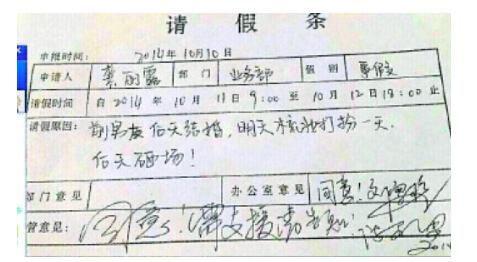 请假条
申报时间： 2014年10月10日
申请人 龚丽露 部门 业务部 假别 事假
请假时间 自2014年10月11日9:00至10月12日18:00止
请假原因： 前男友后天结婚，明天梳妆打扮一天，
后天砸场！
部门意见 办公室意见 同意！
管意见： 同意！需支援请告知！
2014